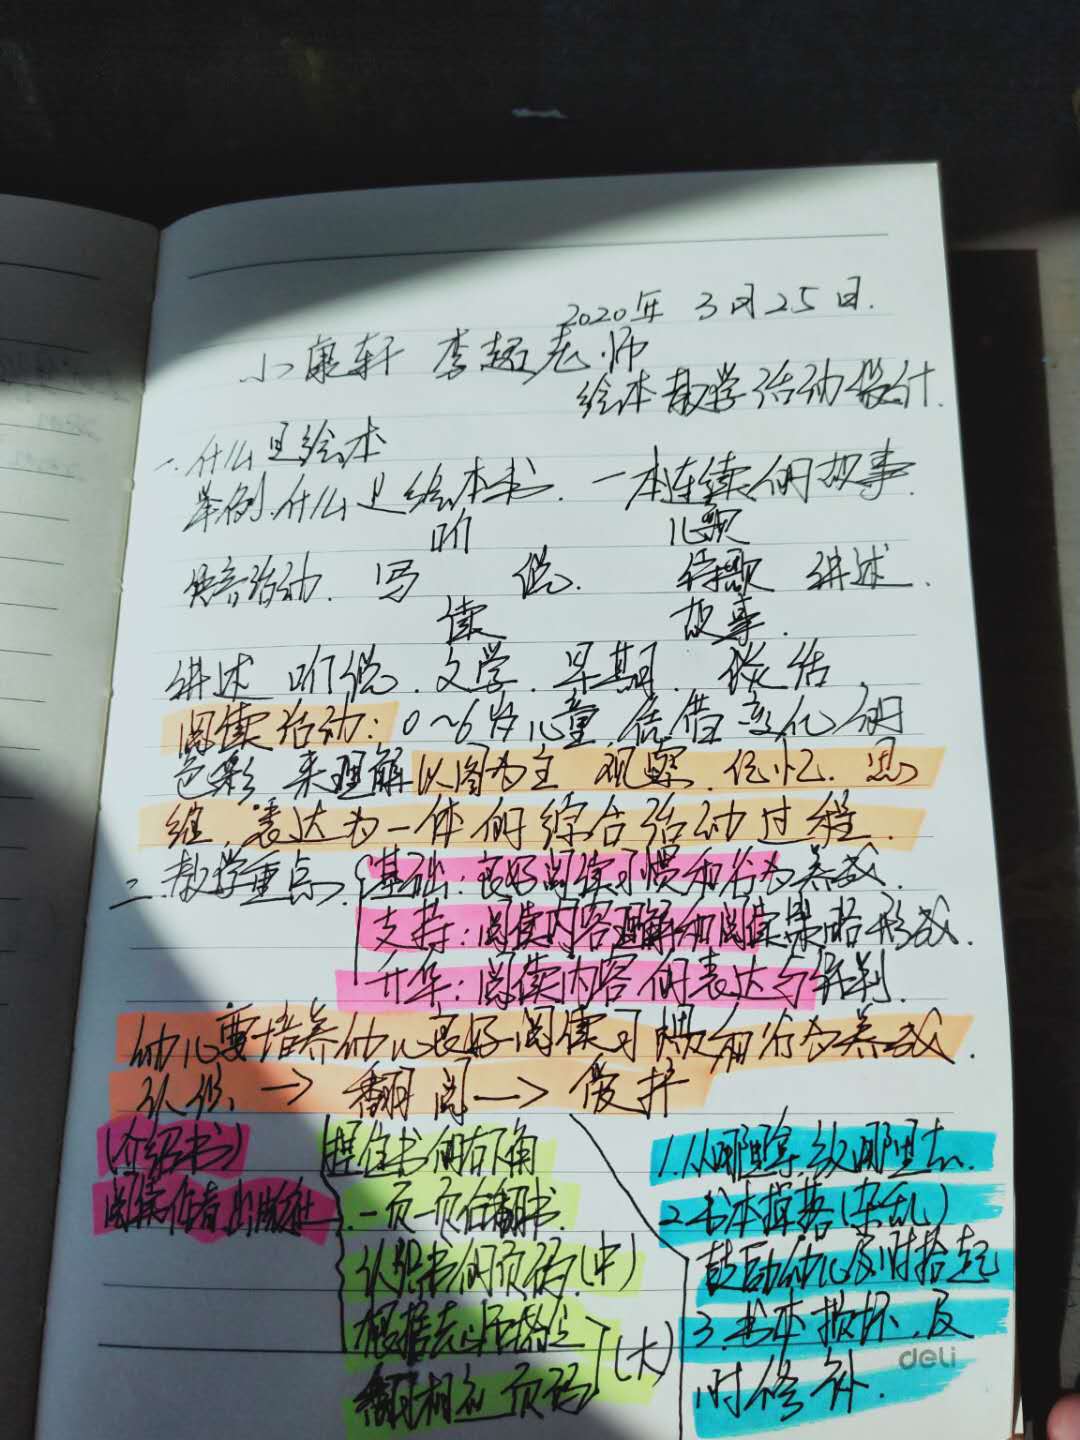 2020年 3月25日.
小康轩 李超老师
绘本教学活动设计.
一.什么是绘本
举例.什么是绘本书. 一本连续的故事.
听 儿歌
语言活动. 写 说. 诗歌 讲述.
读 故事.
讲述 听说. 文学. 早期. 谈话
阅读活动: 0~6岁儿童, 凭借变化的
色彩 来理解以图为主 观察. 记忆. 思
维. 表达为一体的综合活动过程.
二.教学重点. 基础: 良好阅读习惯和行为养成.
支持: 阅读内容理解和阅读策略形成.
升华: 阅读内容的表达与评判.
幼儿要培养幼儿良好阅读习惯和行为养成.
认候 -> 翻阅 -> 爱护
(介绍书)
阅读作者 出版社
捏住书的右下角
一页一页在翻书.
认识书的页码(中)
根据老师指令
翻相应页码 (大)
1.从哪里拿放哪里去.
2.书本掉落(杂乱)
鼓励幼儿及时拾起
3.书本损坏.及
时修补.
deli